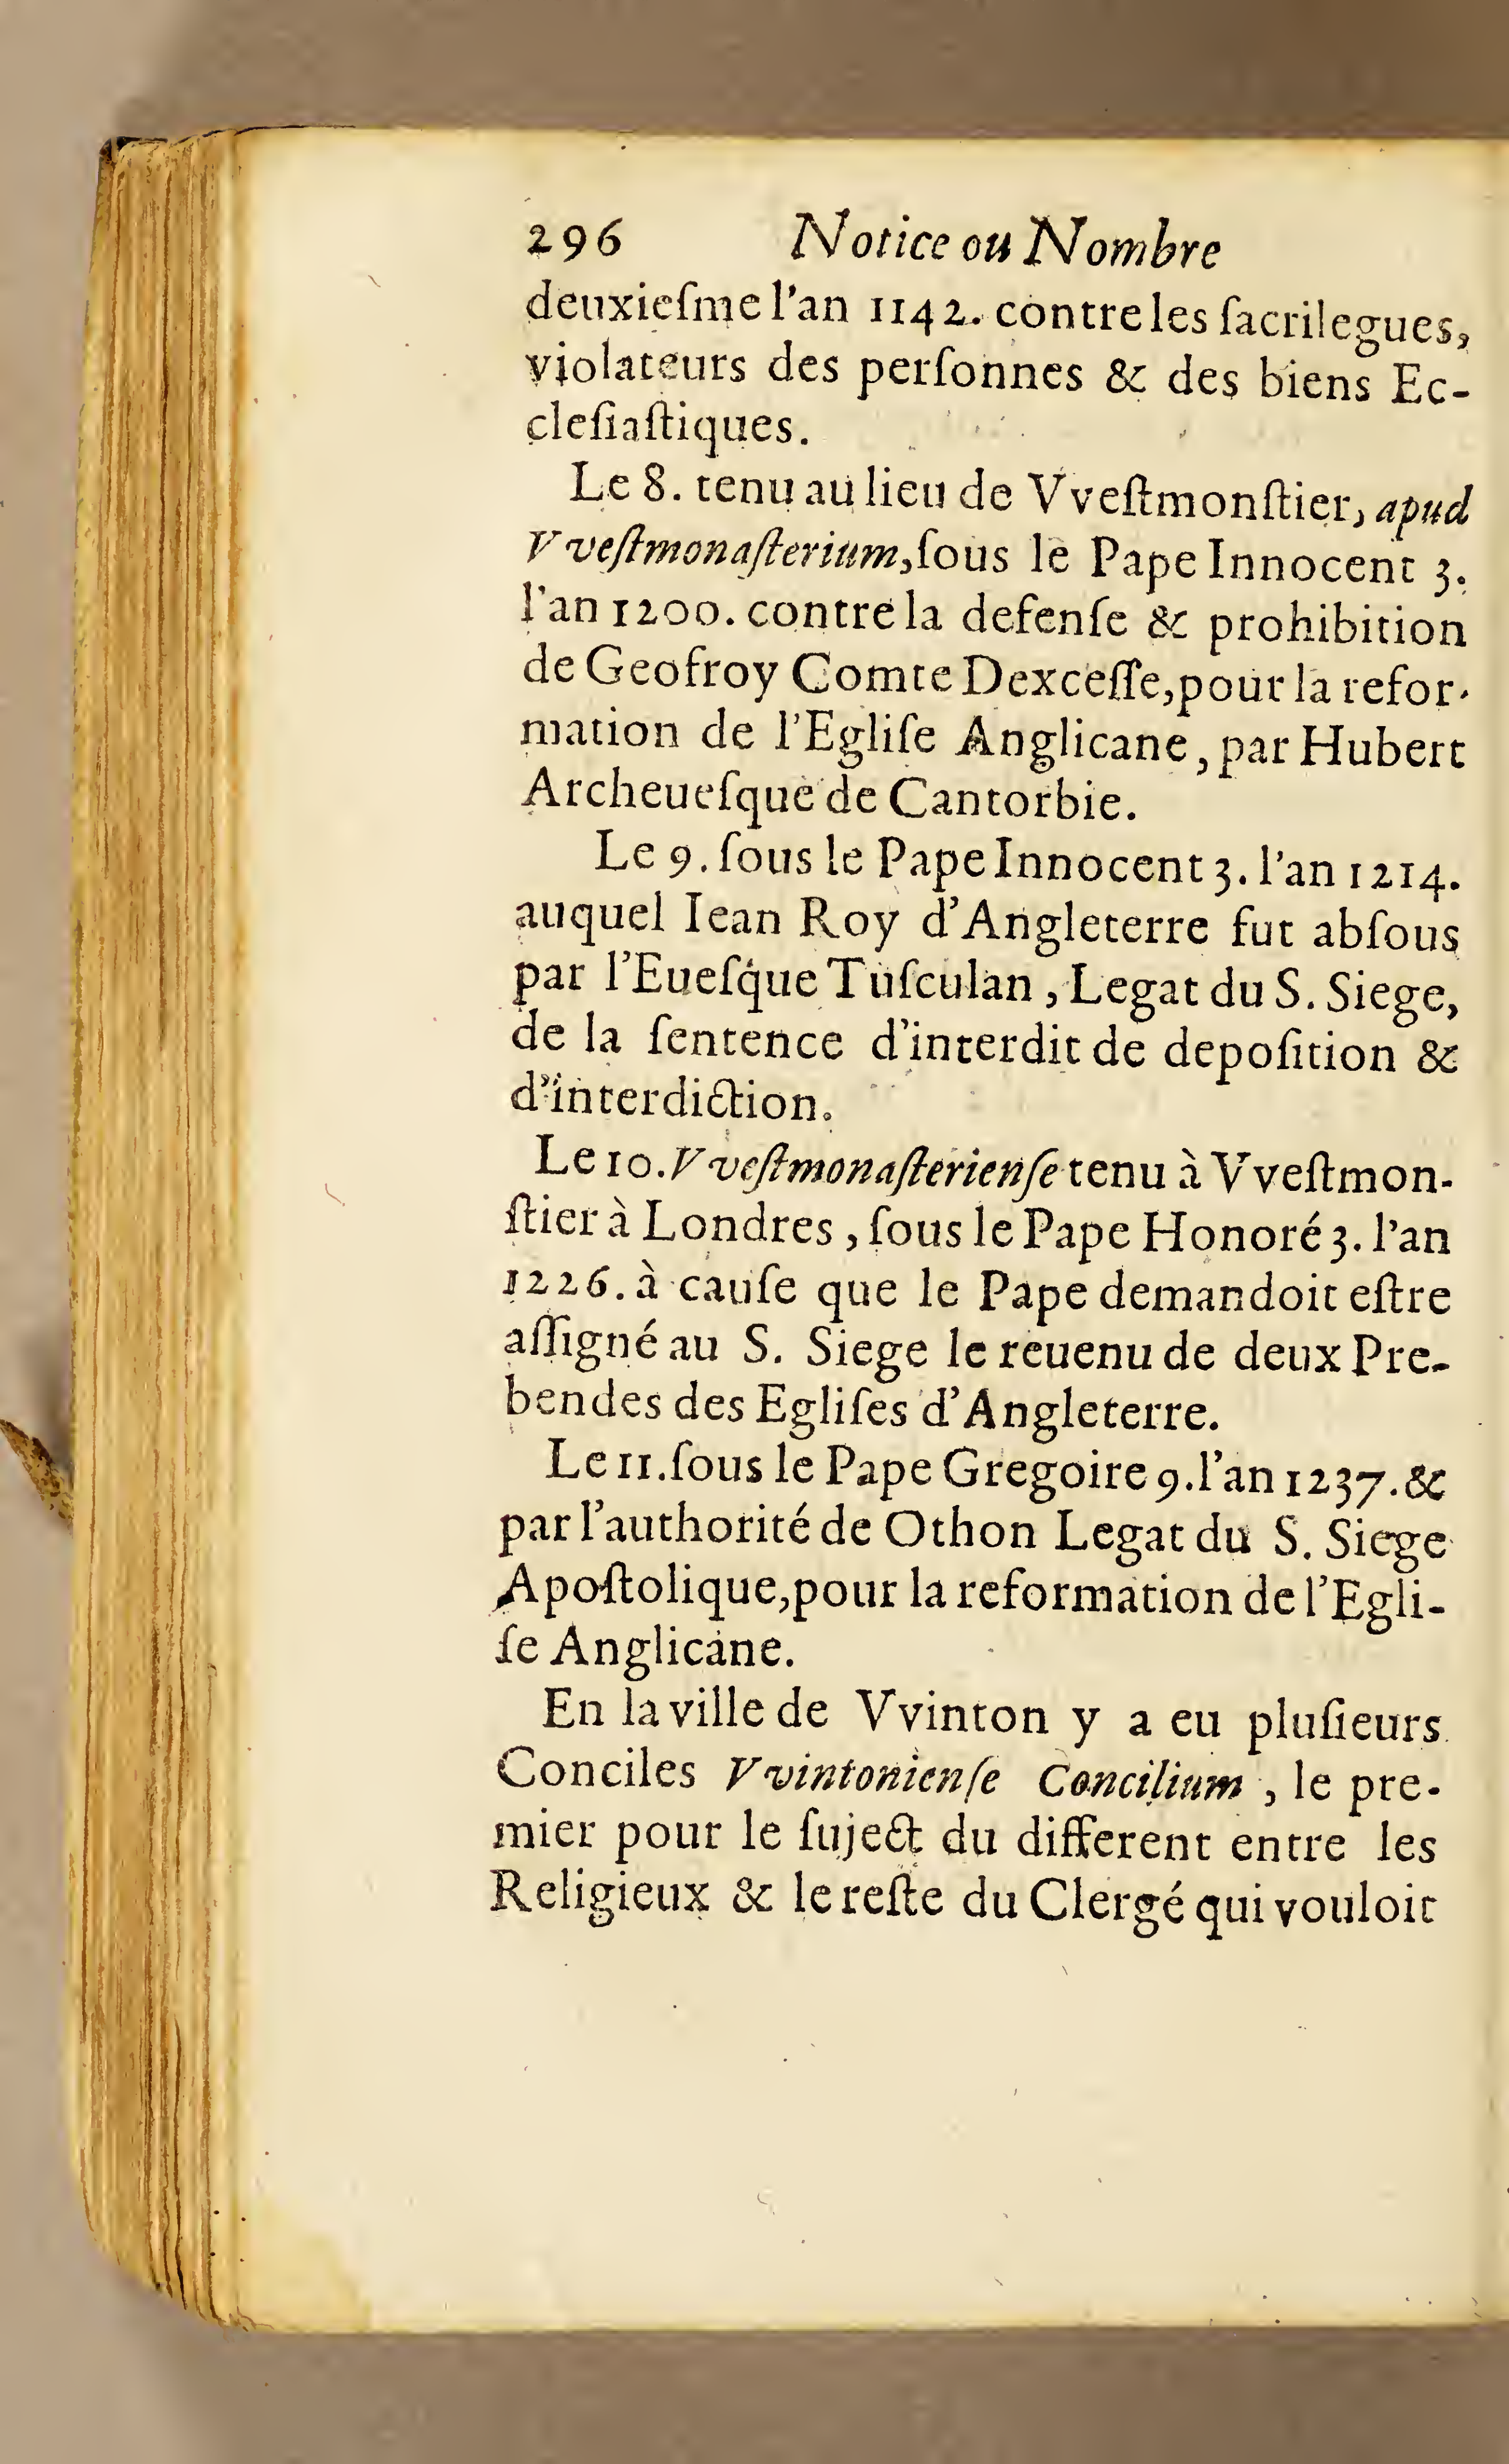 296 Notice ou Nombre
deuxieſme l'an 1142. contre les ſacrilegues,
violateurs des perſonnes & des biens Ec-
cleſiaſtiques.
Le 8. tenu au lieu de Vveſtmonſtier, apud
Vveſtmonaſterium, ſous le Pape Innocent 3.
l'an 1200. contre la defenſe & prohibition
de Geofroy Comte Dexceſſe, pour la refor-
mation de l'Egliſe Anglicane, par Hubert
Archeueſque de Cantorbie.
Le 9. ſous le Pape Innocent 3. l'an 1214.
auquel Iean Roy d'Angleterre fut abſous
par l'Eueſque Tuſculan, Legat du S. Siege,
de la ſentence d'interdit de depoſition &
d'interdiction.
Le 10. Vveſtmonaſterienſe tenu à Vveſtmon-
ſtier à Londres, ſous le Pape Honoré 3. l'an
1226. à cauſe que le Pape demandoit eſtre
aſſigné au S. Siege le reuenu de deux Pre-
bendes des Egliſes d'Angleterre.
Le 11. ſous le Pape Gregoire 9. l'an 1237. &
par l'authorité de Othon Legat du S. Siege
Apoſtolique, pour la reformation de l'Egli-
ſe Anglicane.
En la ville de Vvinton y a eu pluſieurs
Conciles Vvintonienſe Concilium, le pre-
mier pour le ſuject du different entre les
Religieux & le reſte du Clergé qui vouloit